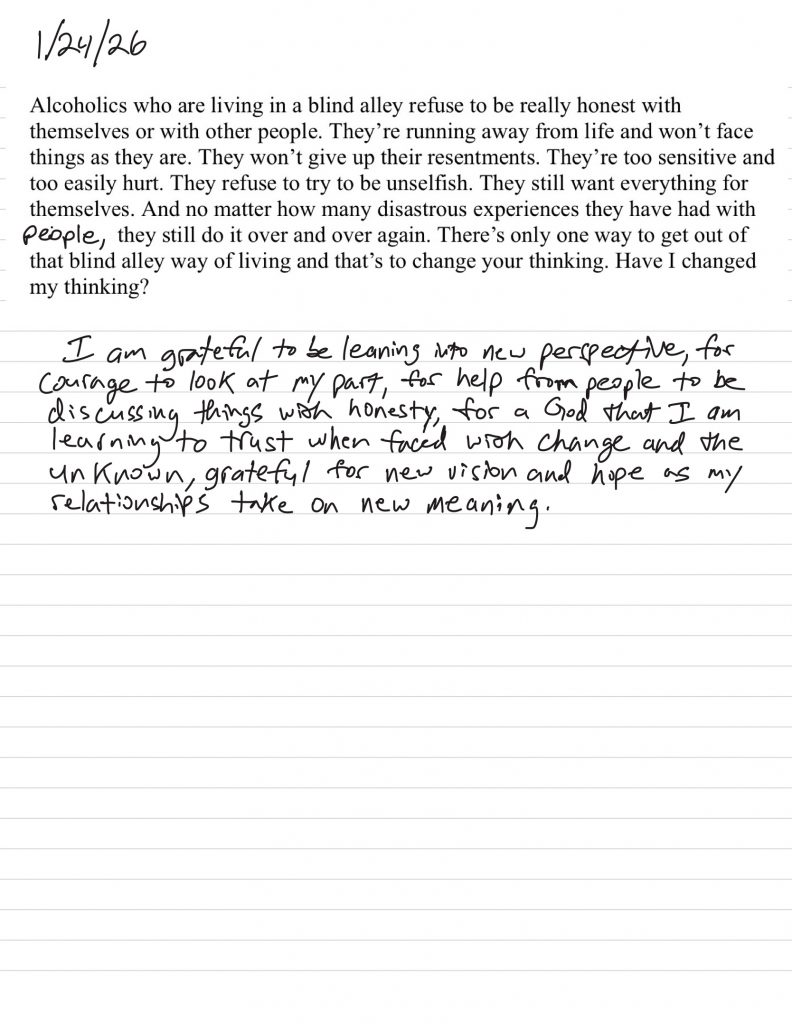 1/24/26
Alcoholics who are living in a blind alley refuse to be really honest with
themselves or with other people. They’re running away from life and won’t face
things as they are. They won’t give up their resentments. They’re too sensitive and
too easily hurt. They refuse to try to be unselfish. They still want everything for
themselves. And no matter how many disastrous experiences they have had with
people, they still do it over and over again. There’s only one way to get out of
that blind alley way of living and that’s to change your thinking. Have I changed
my thinking?
I am grateful to be leaning into new perspective, for
courage to look at my part, for help from people to be
discussing things with honesty, for a God that I am
learning to trust when faced with change and the
unknown, grateful for new vision and hope as my
relationships take on new meaning.